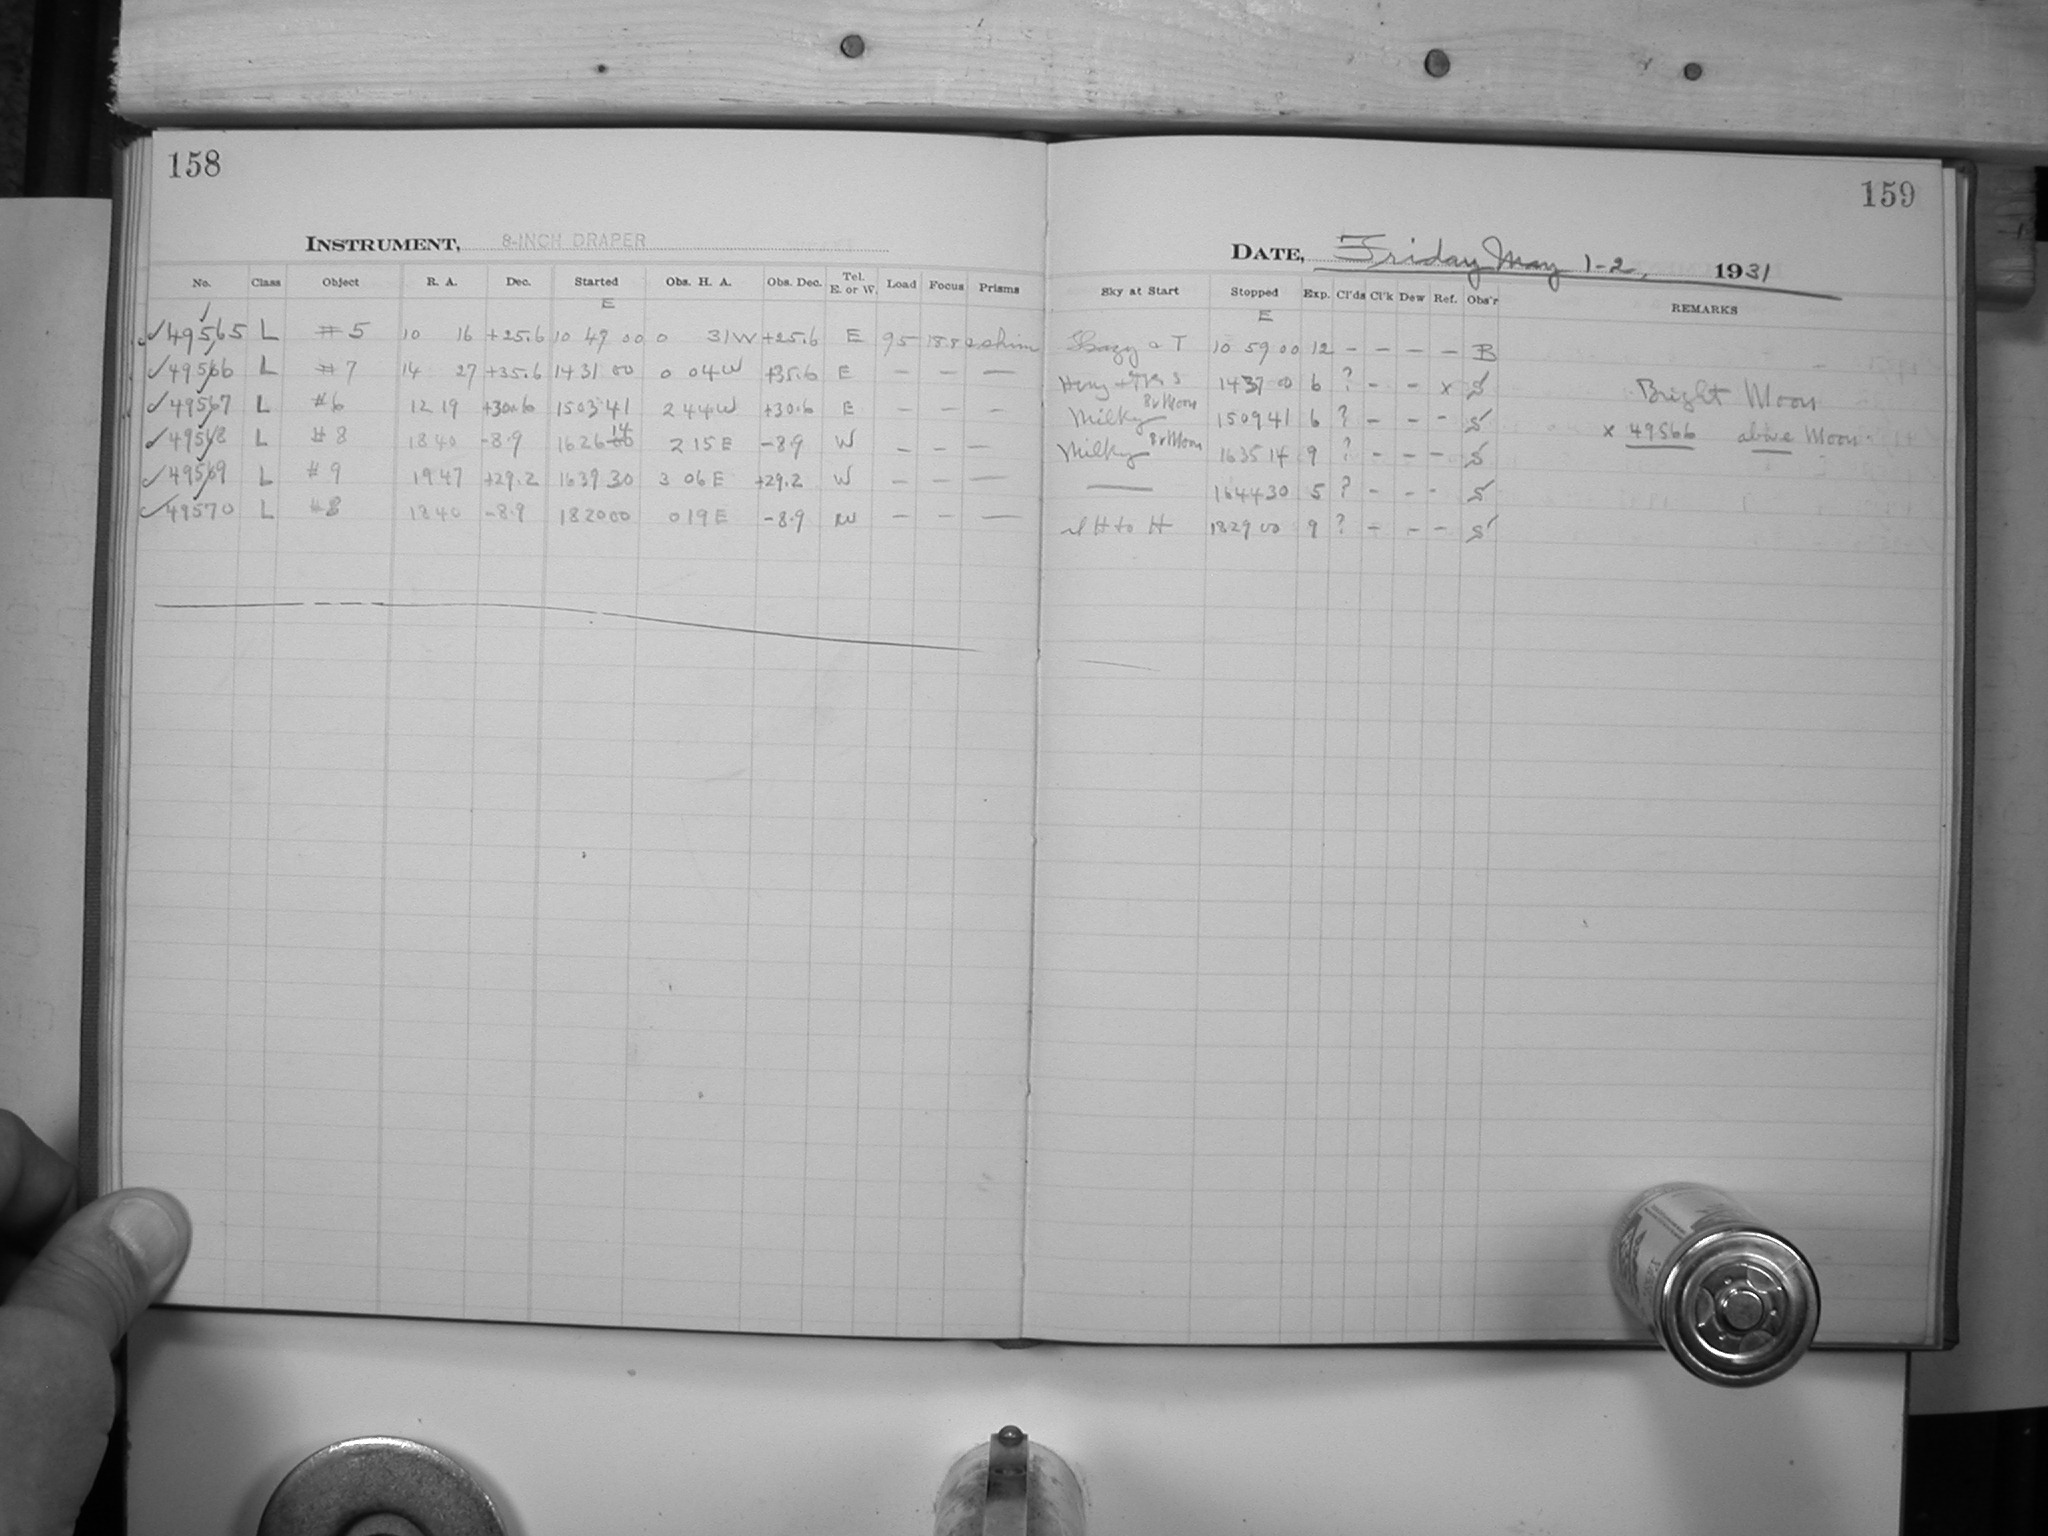 158
159
INSTRUMENT, 8-INCH DRAPER
DATE, Friday May 1-2, 1931
No. Class Object R. A. Dec. Started Obs. H. A. Obs. Dec. Tel. E. or W. Load Focus Prisms
Sky at Start Stopped Exp. Cl'ds Cl'k Dew Ref. Obs'r REMARKS
E
E
✓49565 L #5 10 16 +25.6 10 49 00 0 31W +25.6 E 95 188
Hazy a T 10 59 00 12 – – – – B
✓49566 L #7 14 27 +35.6 14 31 00 0 04W +35.6 E – – —
14 37 00 6 ? – – x S
Bright Moon
✓49567 L #6 12 19 +30.6 15 03 41 2 44W +30.6 E – – –
Milky Br Moon 15 09 41 6 ? – – – S
x 49566 above Moon
✓49568 L #8 18 40 -8.9 16 26 14 2 15 E -8.9 W – – —
Milky Br Moon 16 35 14 9 ? – – – S
✓49569 L #9 19 47 +29.2 16 39 30 3 06 E +29.2 W – – —
— 16 44 30 5 ? – – – S
✓49570 L #8 18 40 -8.9 18 20 00 0 19 E -8.9 W – – —
H to H 18 29 00 9 ? – – – S